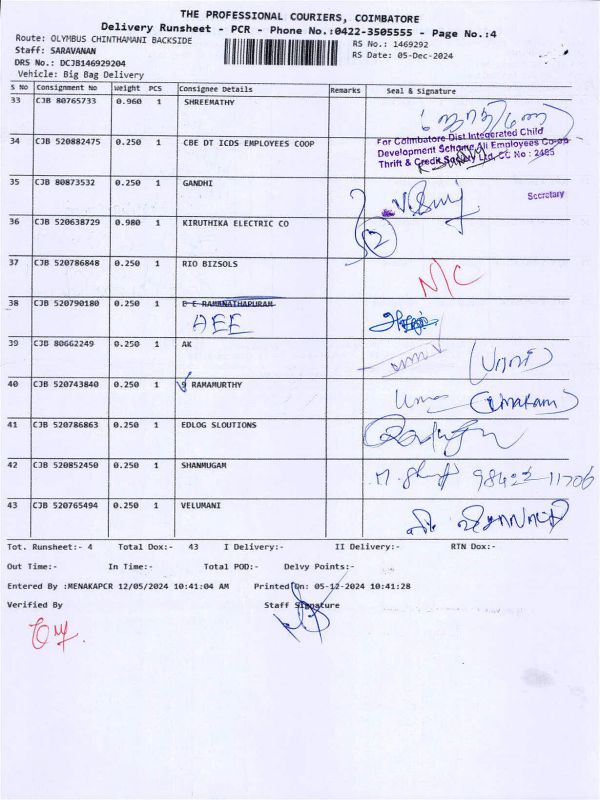 THE PROFESSIONAL COURIERS, COIMBATORE
Delivery Runsheet - PCR - Phone No.:0422-3505555 - Page No.:4
Route: OLYMBUS CHINTHAMANI BACKSIDE
RS No.: 1469292
Staff: SARAVANAN
RS Date: 05-Dec-2024
DRS No.: DCJB146929204
Vehicle: Big Bag Delivery
S No Consignment No Weight PCS Consignee Details Remarks Seal & Signature
33 CJB 80765733 0.960 1 SHREEMATHY
34 CJB 520882475 0.250 1 CBE DT ICDS EMPLOYEES COOP
For Coimbatore Dist Integerated Child
Development Scheme All Employees Co-op
Thrift & Credit Society Ltd, CC No : 2465
Secretary
35 CJB 80873532 0.250 1 GANDHI
36 CJB 520638729 0.980 1 KIRUTHIKA ELECTRIC CO
37 CJB 520786848 0.250 1 RIO BIZSOLS N/C
38 CJB 520790180 0.250 1 E E RAMANATHAPURAM
AEE
39 CJB 80662249 0.250 1 AK
40 CJB 520743840 0.250 1 RAMAMURTHY Uma
41 CJB 520786863 0.250 1 EDLOG SLOUTIONS
42 CJB 520852450 0.250 1 SHANMUGAM
43 CJB 520765494 0.250 1 VELUMANI
Tot. Runsheet:- 4 Total Dox:- 43 I Delivery:- II Delivery:- RTN Dox:-
Out Time:- In Time:- Total POD:- Delvy Points:-
Entered By :MENAKAPCR 12/05/2024 10:41:04 AM Printed On: 05-12-2024 10:41:28
Verified By Staff Signature